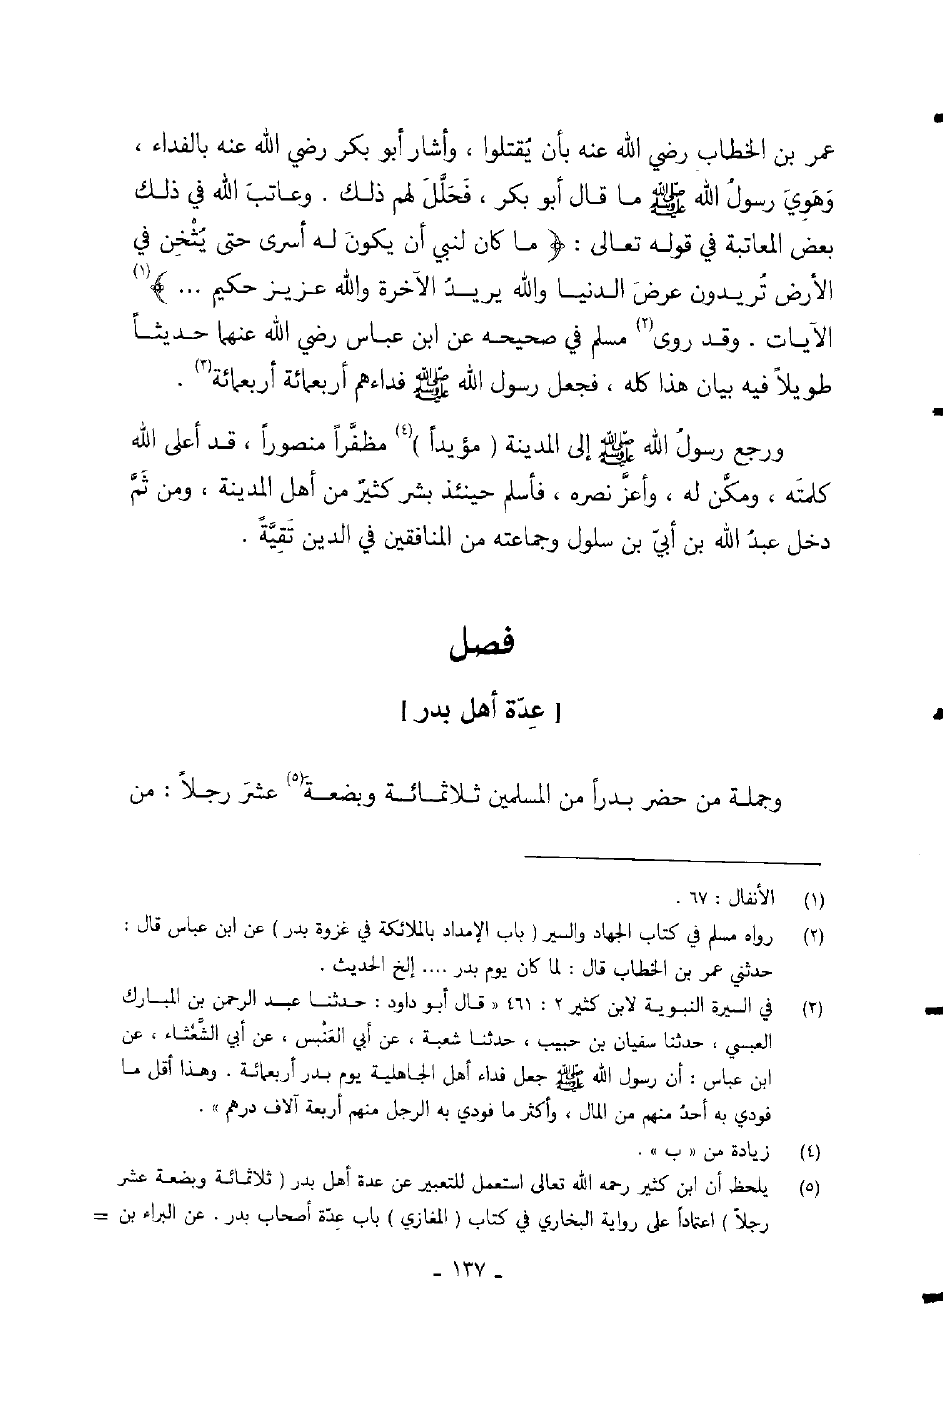 عمر بن الخطاب رضي الله عنه بأن يُقتلوا ، وأشار أبو بكر رضي الله عنه بالفداء ،
وَهَوِيَ رسولُ الله ﷺ ما قال أبو بكر ، فَحَلَّلَ لهم ذلك . وعاتبَ الله في ذلك
بعض المعاتبة في قوله تعالى : ﴿ ما كان لنبي أن يكونَ له أسرى حتى يُثْخِن في
الأرض تُريدون عرضَ الدنيا والله يريدُ الآخرة والله عزيز حكيم ... ﴾(١)
الآيات . وقد روى(٢) مسلم في صحيحه عن ابن عباس رضي الله عنهما حديثاً
طويلاً فيه بيان هذا كله ، فجعل رسول الله ﷺ فداءهم أربعمائة أربعمائة(٣) .
ورجع رسولُ الله ﷺ إلى المدينة ( مؤيداً )(٤) مظفَّراً منصوراً ، قد أعلى الله
كلمتَه ، ومكَّن له ، وأعزَّ نصره ، فأسلم حينئذ بشر كثيرٌ من أهل المدينة ، ومن ثَمَّ
دخل عبدُ الله بن أبيّ بن سلول وجماعته من المنافقين في الدين تَقِيَّةً .
فصل
[ عِدّة أهل بدر ]
وجملة من حضر بدراً من المسلمين ثلاثمائة وبضعة(٥) عشرَ رجلاً : من
(١) الأنفال : ٦٧ .
(٢) رواه مسلم في كتاب الجهاد والسير ( باب الإمداد بالملائكة في غزوة بدر ) عن ابن عباس قال :
حدثني عمر بن الخطاب قال : لما كان يوم بدر .... إلخ الحديث .
(٣) في السيرة النبوية لابن كثير ٢ : ٤٦١ « قال أبو داود : حدثنا عبد الرحمن بن المبارك
العبسي ، حدثنا سفيان بن حبيب ، حدثنا شعبة ، عن أبي العَنْبس ، عن أبي الشَّعْثاء ، عن
ابن عباس : أن رسول الله ﷺ جعل فداء أهل الجاهلية يوم بدر أربعمائة . وهذا أقل ما
فودي به أحدٌ منهم من المال ، وأكثر ما فودي به الرجل منهم أربعة آلاف درهم » .
(٤) زيادة من « ب » .
(٥) يلحظ أن ابن كثير رحمه الله تعالى استعمل للتعبير عن عدة أهل بدر ( ثلاثمائة وبضعة عشر
رجلاً ) اعتماداً على رواية البخاري في كتاب ( المغازي ) باب عِدّة أصحاب بدر . عن البراء بن =
- ١٣٧ -